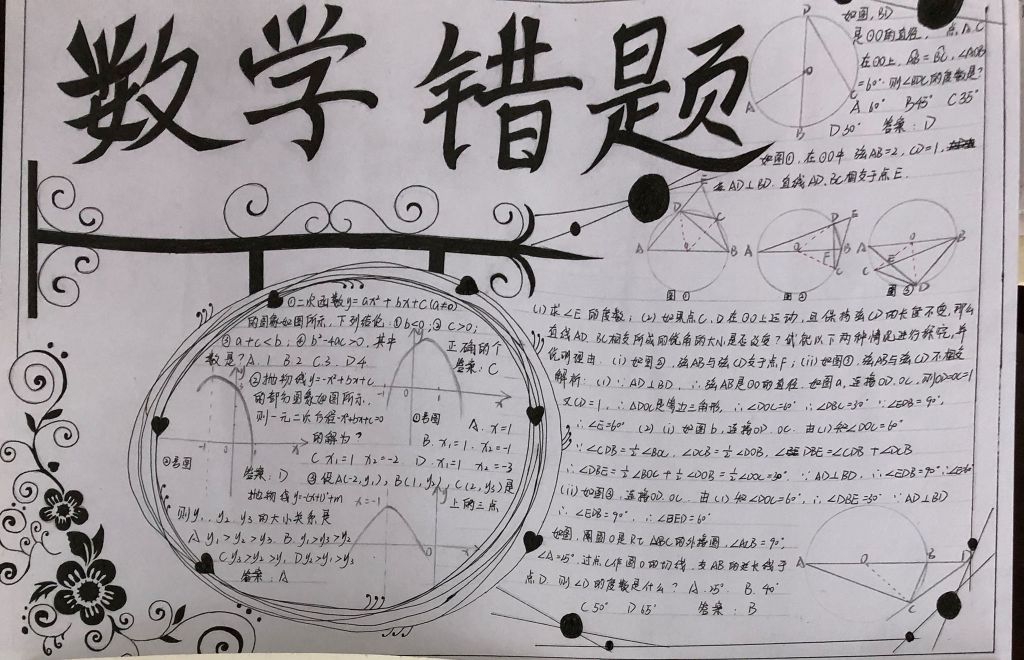 数学错题
如图,BD
是⊙O的直径, 点A、C
在⊙O上, AB=BC, ∠AOB
=60° 则∠BDC的度数是?
A.60° B45° C.35°
D30° 答案:D
如图①,在⊙O中 弦AB=2, CD=1,
AD⊥BD. 直线AD、BC相交于点E.
图①
图②
图③
(1)求∠E的度数; (2)如果点C、D在⊙O上运动,且保持弦CD的长度不变,那么
直线AD、BC相交所成的锐角的大小是否改变?试就以下两种情况进行探究,并
说明理由. (i)如图②,弦AB与弦CD交于点F; (ii)如图③,弦AB与弦CD不相交
解析: (1)∵AD⊥BD, ∴弦AB是⊙O的直径. 如图a,连接OD、OC, 则OD=OC=1
又CD=1, ∴△DOC是等边三角形, ∴∠DOC=60° ∴∠DBC=30° ∵∠EDB=90°,
∴∠E=60° (2) (i)如图b,连接OD、OC. 由(1)知∠DOC=60°
∵∠CDB=½∠BOC, ∠DCB=½∠DOB, ∠DBE=∠CDB+∠DCB
∴∠DBE=½∠BOC+½∠DOB=½∠DOC=30° ∵AD⊥BD, ∴∠EDB=90° ∴∠E=60°
(ii)如图③,连接OD、OC. 由(1)知∠DOC=60°, ∴∠DBE=30° ∵AD⊥BD
∴∠EDB=90°, ∴∠BED=60°
如图,圆O是Rt ABC的外接圆, ∠ACB=90°,
∠A=25°, 过点C作圆O的切线, 交AB的延长线于
点D. 则∠D的度数是什么? A.25° B.40°
C50° D65° 答案:B
①二次函数y=ax²+bx+c(a≠0)
的图象如图所示,下列结论:①b<0;②c>0;
③a+c<b;④b²-4ac>0, 其中
正确的个
数是? A.1 B2 C.3. D4
答案:C
②抛物线y=-x²+bx+c
的部分图象如图所示,
则一元二次方程-x²+bx+c=0
的解为?
①号图
A. x=1
B. x₁=1. x₂=-1
C x₁=1 x₂=-2 D. x₁=1 x₂=-3
②号图
答案:D ③设A(-2,y₁), B(1,y₂), C(2,y₃)是
抛物线y=-(x+1)²+m
上的三点
x=-1
则y₁、y₂、y₃的大小关系是
A.y₁>y₂>y₃. B.y₁>y₃>y₂
C.y₃>y₂>y₁ D.y₃>y₁>y₂
答案:A